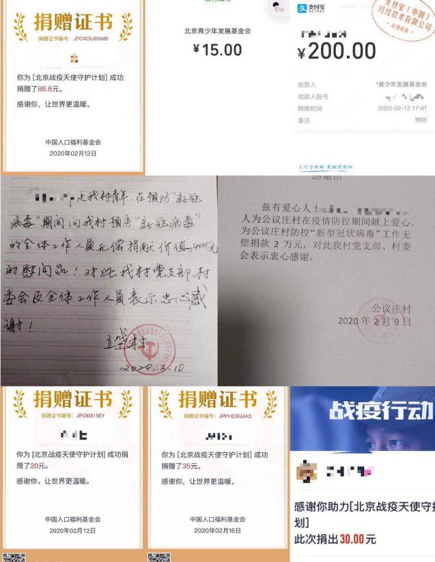 捐赠证书
捐赠证书编号：JPOXOU65WB
你为 [北京战疫天使守护计划] 成功
捐赠了88.8元。
感谢你，让世界更温暖。
中国人口福利基金会
2020年02月12日
北京青少年发展基金会
¥15.00
支付宝
¥200.00
收款人
青少年发展基金会
收款人账号
转账时间
2020-02-12 17:41
备注
特钢
是我村青年，在预防"新冠
病毒"期间向我村预防"新冠病毒"
的全体工作人员无偿捐献价值
元
的慰问品！对此我村党支部、村
委会及全体工作人员表示忠心感
谢！
2020.3.10
兹有爱心人士
人为公议庄村在疫情防控期间献上爱心，
为公议庄村防控"新型冠状病毒"工作无
偿捐款 2 万元，对此我村党支部、村委
会表示衷心感谢。
公议庄村
2020 年 2 月 9 日
捐赠证书
捐赠证书编号：JPGXI81SEY
你为 [北京战疫天使守护计划] 成功捐
赠了20元。
感谢你，让世界更温暖。
中国人口福利基金会
2020年02月12日
捐赠证书
捐赠证书编号：JPPHEBQ4AS
你为 [北京战疫天使守护计划] 成功捐
赠了35元。
感谢你，让世界更温暖。
中国人口福利基金会
2020年02月16日
战疫行动
感谢你助力[北京战疫天使守护
划]
此次捐出 30.00 元